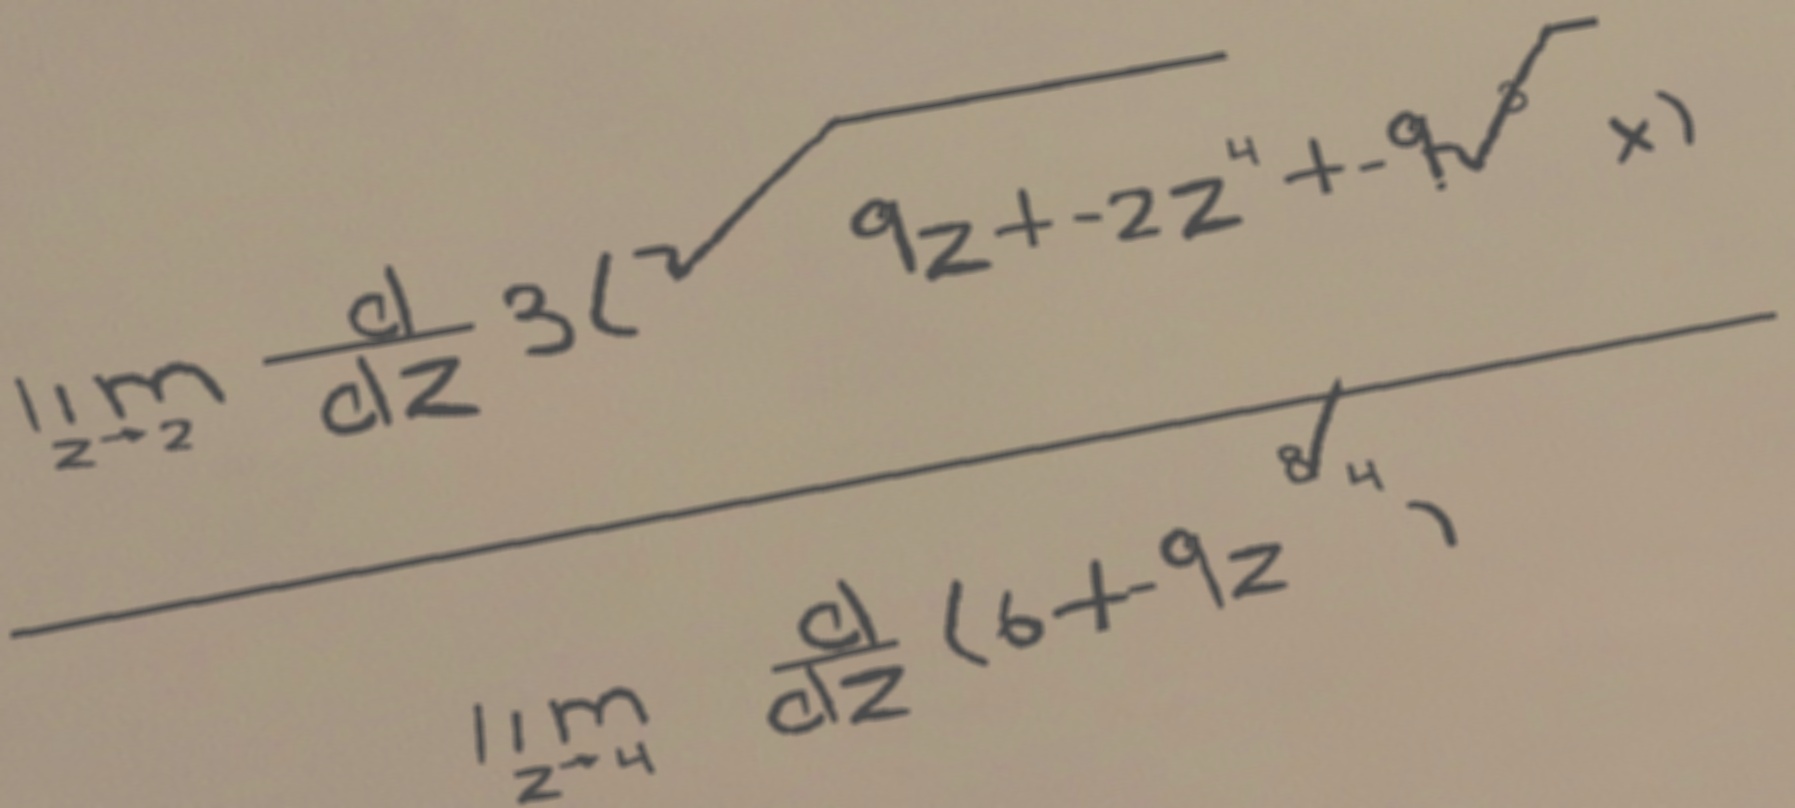 lim z→2 d/dz 3(²√ 9z+-2z⁴+-9 ³√ x)
lim z→4 d/dz (6+-9z ⁸√4 )